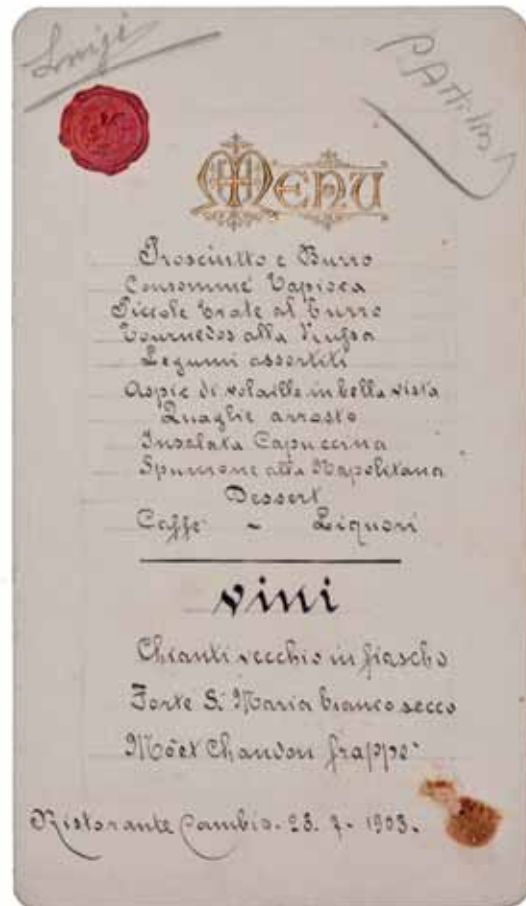 Luigi
MENU
Prosciutto e Burro
Consommé Tapioca
Piccole Trote al Burro
Tournedos alla
Legumi assortiti
Aspic di volaille in bella vista
Quaglie arrosto
Insalata Capuccina
Spumone alla Napolitana
Dessert
Caffè - Liquori
Vini
Chianti vecchio in fiascho
Forte S. Maria bianco secco
Moët Chandon frappé
Ristorante Cambio - 23. 7 - 1903.